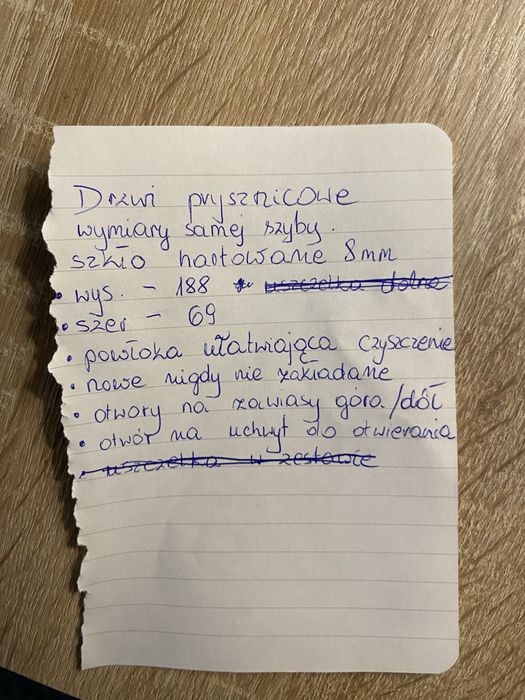 Drzwi prysznicowe
wymiary samej szyby.
szkło hartowane 8mm
• wys. - 188 uszczelka dolna
• szer - 69
• powłoka ułatwiająca czyszczenie
• nowe nigdy nie zakładane
• otwory na zawiasy góra/dół
• otwór na uchwyt do otwierania
• uszczelka w zestawie